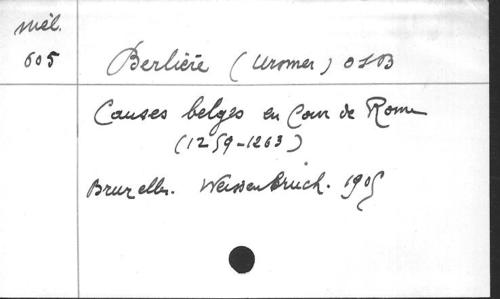 mél.
605
Berlière (Urmer) OSB
Causes belges en Cour de Rome
(1259-1263)
Bruxelles. Weissenbruch. 1905